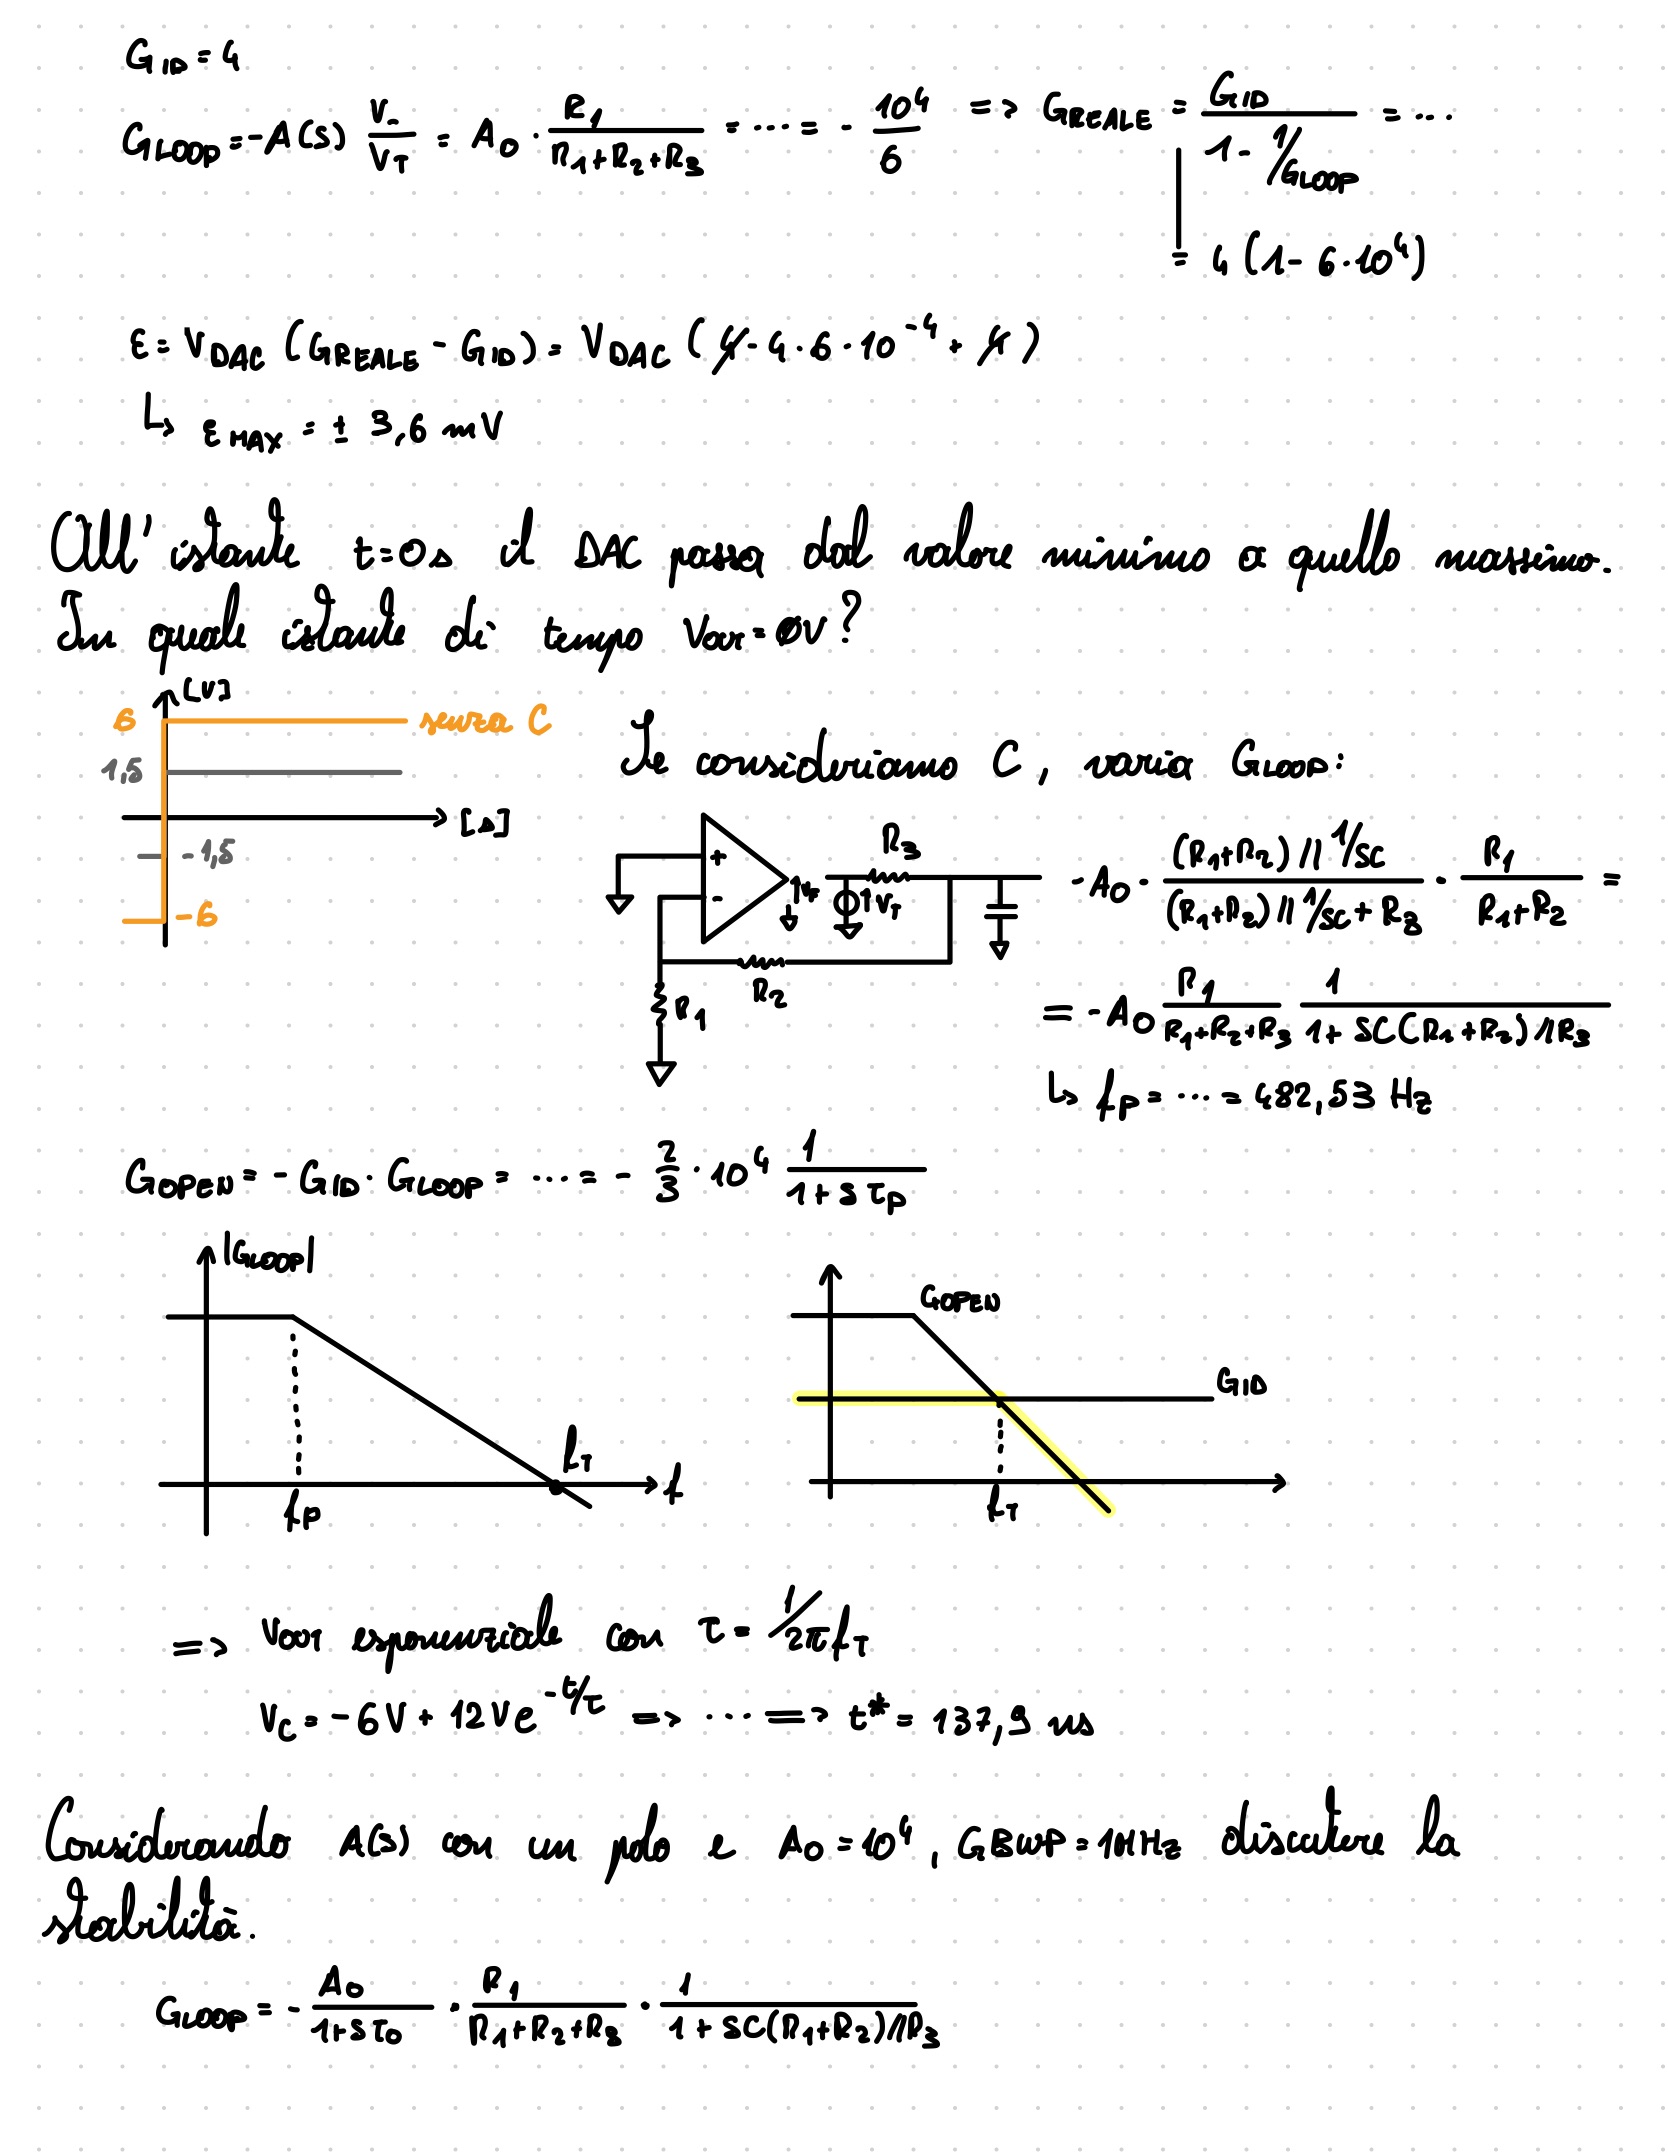 G_ID = 4
G_LOOP = -A(s) V_-/V_T = A_0 · R_1/(R_1+R_2+R_3) = .... = - 10^4/6 => G_REALE = G_ID/(1 - 1/G_LOOP) = ...
= 4 (1 - 6·10^4)
ε = V_DAC (G_REALE - G_ID) = V_DAC (4 - 4·6·10^-4 + 4)
↳ ε_MAX = ± 3,6 mV
All' istante t=0s il DAC passa dal valore minimo a quello massimo.
In quale istante di tempo V_OUT = 0V?
[V]
6 senza C
1,5
[s]
-1,5
-6
Se consideriamo C, varia G_LOOP:
+
-
V_F
V_T
R_3
R_2
R_1
-A_0 · ((R_1+R_2)//1/sC)/((R_1+R_2)//1/sC + R_3) · R_1/(R_1+R_2) =
= -A_0 R_1/(R_1+R_2+R_3) 1/(1 + sC(R_1+R_2)//R_3)
↳ f_P = ... = 482,53 Hz
G_OPEN = - G_ID · G_LOOP = ... = - 2/3 · 10^4 1/(1 + s τ_P)
|G_LOOP|
f_P
f_T
f
G_OPEN
G_ID
f_T
=> V_OUT esponenziale con τ = 1/2πf_T
V_C = -6V + 12V e^-t/τ => ... => t* = 137,9 ns
Considerando A(s) con un polo e A_0 = 10^4, GBWP = 1MHz discutere la
stabilità.
G_LOOP = - A_0/(1+sτ_0) · R_1/(R_1+R_2+R_3) · 1/(1 + sC(R_1+R_2)//R_3)